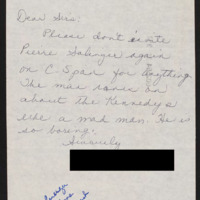 Dear Sirs:
Please don't invite
Pierre Salinger again
on C. Span for anything.
The man raves on
about the Kennedy's
like a mad man. He is
so boring.
Sincerely